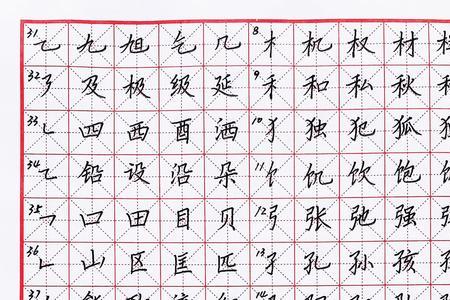 31 ㇈ 九 旭 乞 几 8 木 机 权 材
32 ㇋ 及 极 级 延 9 禾 和 私 秋
33 ㇄ 四 西 酉 洒 10 犭 独 犯 狐
34 ㇍ 铅 设 沿 朵 11 饣 饥 饮 饱
35 ㇕ 口 田 目 贝 12 弓 张 弛 强
36 ㇗ 山 区 匡 匹 13 子 孔 孙 孩
37